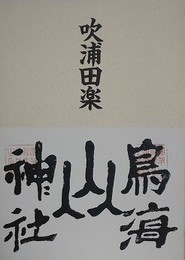 吹浦田楽
鳥海
山
神社